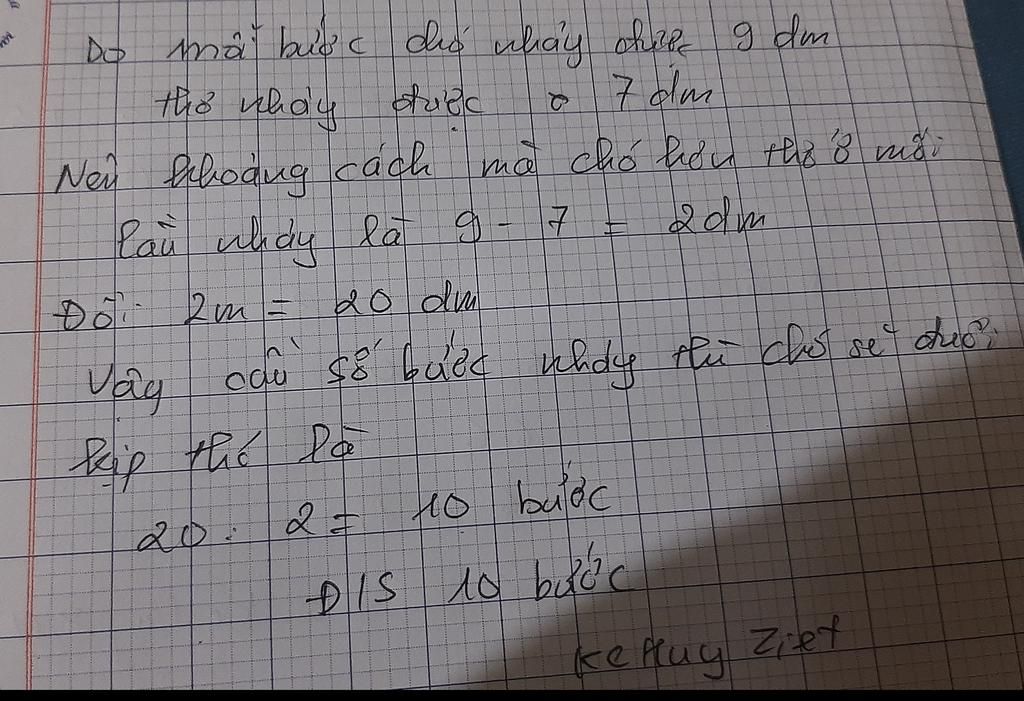 Do mỗi bước chó nhảy được 9 dm
thỏ nhảy được 7 dm
Nên khoảng cách mà chó hơn thỏ ở mỗi
lần nhảy là 9 - 7 = 2 dm
Đổi: 2m = 20 dm
Vậy cần số bước nhảy thì chó sẽ đuổi
kịp thỏ là
20 : 2 = 10 bước
Đ/S 10 bước